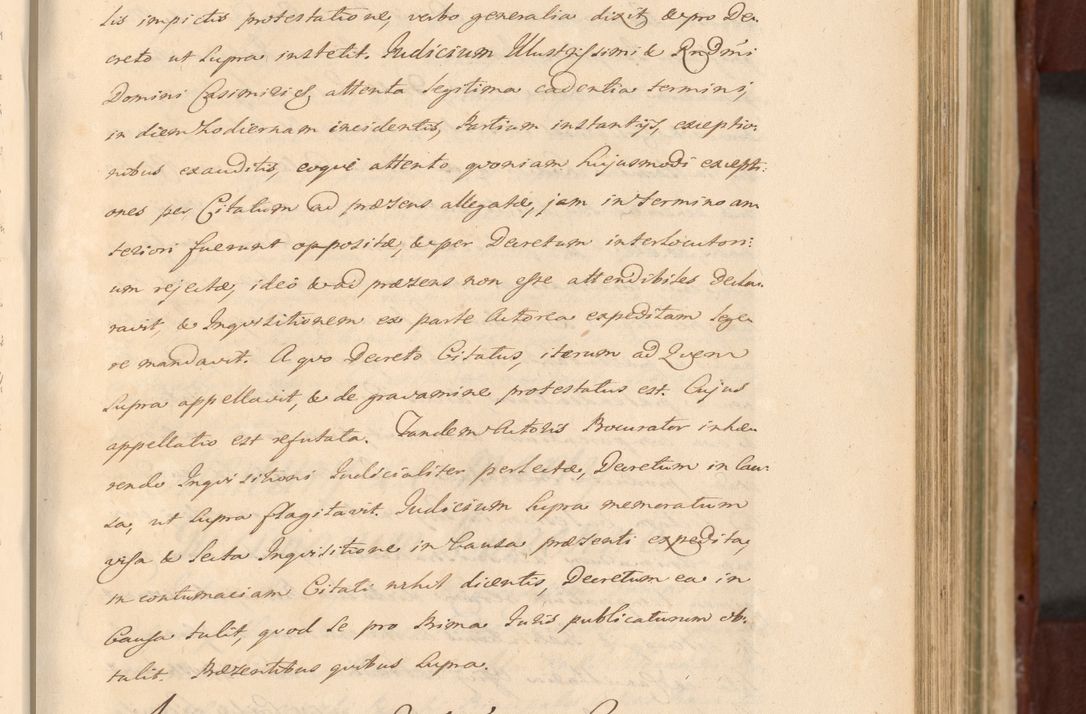 tis impictis protestatione, verbo generalia dixit, & pro De-
creto ut Supra institit. Judicium Illustrissimi & Rndmi
Domini Casimiri &, attenta legitima cadentia termini,
in diem hodiernam incidentis, Partium instantijs, exceptio:
nibus exauditis, eoque attento quoniam hujusmodi excepti:
ones per Citatum ad præsens allegatæ, jam in termino an
teriori fuerunt oppositæ, & per Decretum interlocutori:
um rejectæ, ideo & ad præsens non esse attendibiles Decla-
ravit, & Inqvisitionem ex parte Actorea expeditam lege-
re mandavit. A quo Decreto Citatus, iterum ad Quem
Supra appellavit, & de gravamine protestatus est. Cujus
appellatio est refutata. Tandem Actoris Procurator inhæ-
rendo Inqvisitioni Judicialiter perlectæ, Decretum in Cau-
sa, ut Supra flagitavit. Judicium Supra memoratum
visa & lecta Inqvisitione in Causa præsenti expedita,
in contumaciam Citati nihil dicentis, Decretum ea in
Causa tulit, quod se pro Prima Juris publicaturum ob-
tulit. Præsentibus quibus Supra.